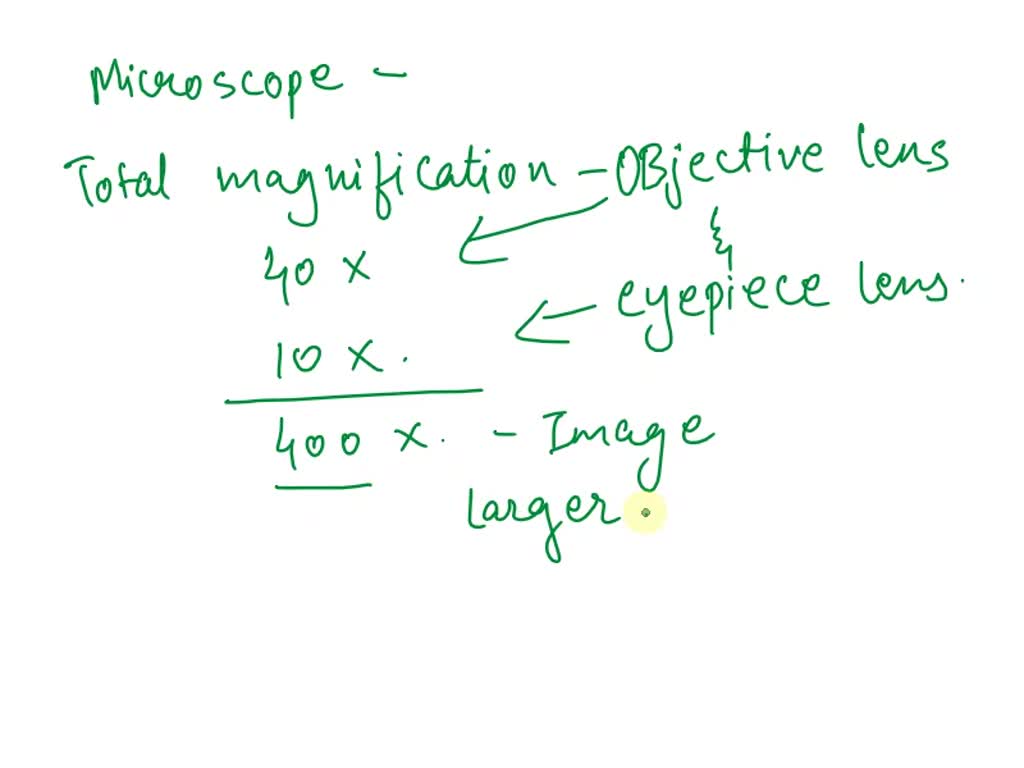 Microscope -
Total magnification - Objective lens
&
40 x
eyepiece lens.
10 x.
400 x. - Image
larger